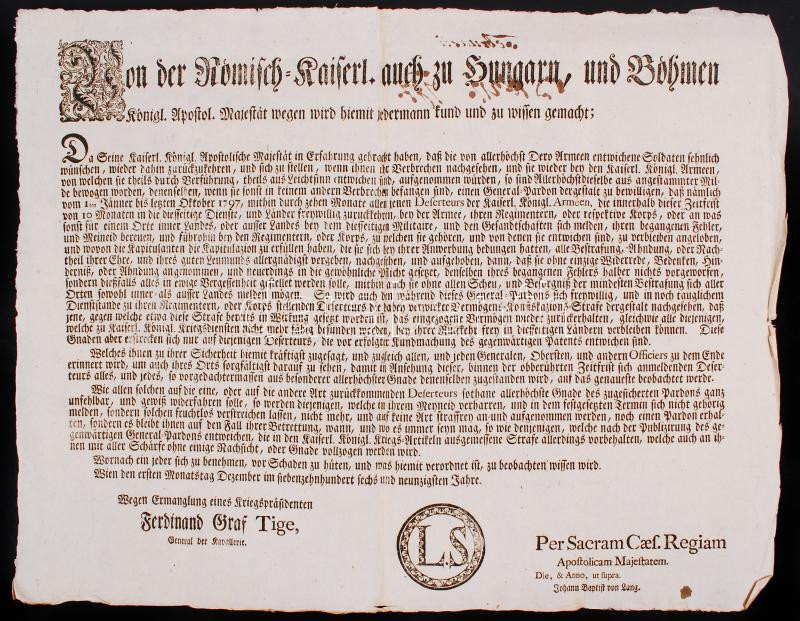 Von der Römisch-Kaiserl. auch zu Hungarn, und Böhmen
Königl. Apostol. Majestät wegen wird hiemit jedermann kund und zu wissen gemacht;
Da Seine Kaiserl. Königl. Apostolische Majestät in Erfahrung gebracht haben, daß die von allerhöchst Dero Armeen entwichene Soldaten sehnlich
wünschen, wieder dahin zurückzukehren, und sich zu stellen, wenn ihnen ihr Verbrechen nachgesehen, und sie wieder bey den Kaiserl. Königl. Armeen,
von welchen sie theils durch Verführung, theils aus Leichtsinn entwichen sind, aufgenommen würden, so sind Allerhöchstdieselbe aus angestammter Mil-
de bewogen worden, denenselben, wenn sie sonst in keinem andern Verbrechen befangen sind, einen General-Pardon dergestalt zu bewilligen, daß nämlich
vom 1ten Jänner bis letzten Oktober 1797, mithin durch zehen Monate allen jenen Deserteurs der Kaiserl. Königl. Arméen, die innerhalb dieser Zeitfrist
von 10 Monaten in die diesseitige Dienste, und Länder freywillig zurückkehren, bey der Armee, ihren Regimentern, oder respektive Korps, oder an was
sonst für einem Orte inner Landes, oder ausser Landes bey dem diesseitigen Militaire, und den Gesandtschaften sich melden, ihren begangenen Fehler,
und Meineid bereuen, und führohin bey den Regimentern, oder Korps, zu welchen sie gehören, und von denen sie entwichen sind, zu verbleiben angeloben,
und wovon die Kapitulanten die Kapitulazion zu erfüllen haben, die sie sich bey ihrer Anwerbung bedungen hatten, alle Bestraffung, Ahndung, oder Nach-
theil ihrer Ehre, und ihres guten Leumunds allergnädigst vergeben, nachgesehen, und aufgehoben, dann, daß sie ohne einzige Widerrede, Bedenken, Hin-
derniß, oder Ahndung angenommen, und neuerdings in die gewöhnliche Pflicht gesetzt, denselben ihres begangenen Fehlers halber nichts vorgeworfen,
sondern dießfalls alles in ewige Vergessenheit gestellet werden solle, mithin auch sie ohne allen Scheu, und Besorgniß der mindesten Bestrafung sich aller
Orten sowohl inner- als ausser Landes melden mögen. So wird auch den während dieses General-Pardons sich freywillig, und in noch tauglichem
Dienststande zu ihren Regimentern, oder Korps stellenden Deserteurs die dabey verwürkte Vermögens-Konfiskazions-Strafe dergestalt nachgesehen, daß
jene, gegen welche etwa diese Strafe bereits in Wirkung gesetzt worden ist, das eingezogene Vermögen wieder zurückerhalten, gleichwie alle diejenigen,
welche zu Kaiserl. Königl. Kriegsdiensten nicht mehr fähig befunden werden, bey ihrer Rückkehr frey in diesseitigen Ländern verbleiben können. Diese
Gnaden aber erstrecken sich nur auf diejenigen Deserteurs, die vor erfolgter Kundmachung des gegenwärtigen Patents entwichen sind.
Welches ihnen zu ihrer Sicherheit hiemit kräftigst zugesagt, und zugleich allen, und jeden Generalen, Obersten, und andern Officiers zu dem Ende
erinnert wird, um auch ihres Orts sorgfältigst darauf zu sehen, damit in Ansehung dieser, binnen der obberührten Zeitfrist sich anmeldenden Deser-
teurs alles, und jedes, so vorgedachtermassen aus besonderer allerhöchster Gnade denenselben zugestanden wird, auf das genaueste beobachtet werde.
Wie allen solchen auf die eine, oder auf die andere Art zurückkommenden Deserteurs sothane allerhöchste Gnade des zugesicherten Pardons ganz
unfehlbar, und gewiß widerfahren solle, so werden diejenigen, welche in ihrem Meyneid verharren, und in dem festgesetzten Termin sich nicht gehörig
melden, sondern solchen fruchtlos verstreichen lassen, nicht mehr, und auf keine Art straffrey an- und aufgenommen werden, noch einen Pardon erhal-
ten, sondern es bleibt ihnen auf den Fall ihrer Betrettung, wann, und wo es immer seyn mag, so wie denjenigen, welche nach der Publizirung des ge-
genwärtigen General-Pardons entweichen, die in den Kaiserl. Königl. Kriegs-Artikeln ausgemessene Strafe allerdings vorbehalten, welche auch an ih-
nen mit aller Schärfe ohne einige Nachsicht, oder Gnade vollzogen werden wird.
Wornach ein jeder sich zu benehmen, vor Schaden zu hüten, und was hiemit verordnet ist, zu beobachten wissen wird.
Wien den ersten Monatstag Dezember im siebenzehnhundert sechs und neunzigsten Jahre.
Wegen Ermanglung eines Kriegspräsidenten
Ferdinand Graf Tige,
General der Kavallerie.
LS
Per Sacram Cæs. Regiam
Apostolicam Majestatem.
Die, & Anno, ut supra.
Johann Baptist von Lang.